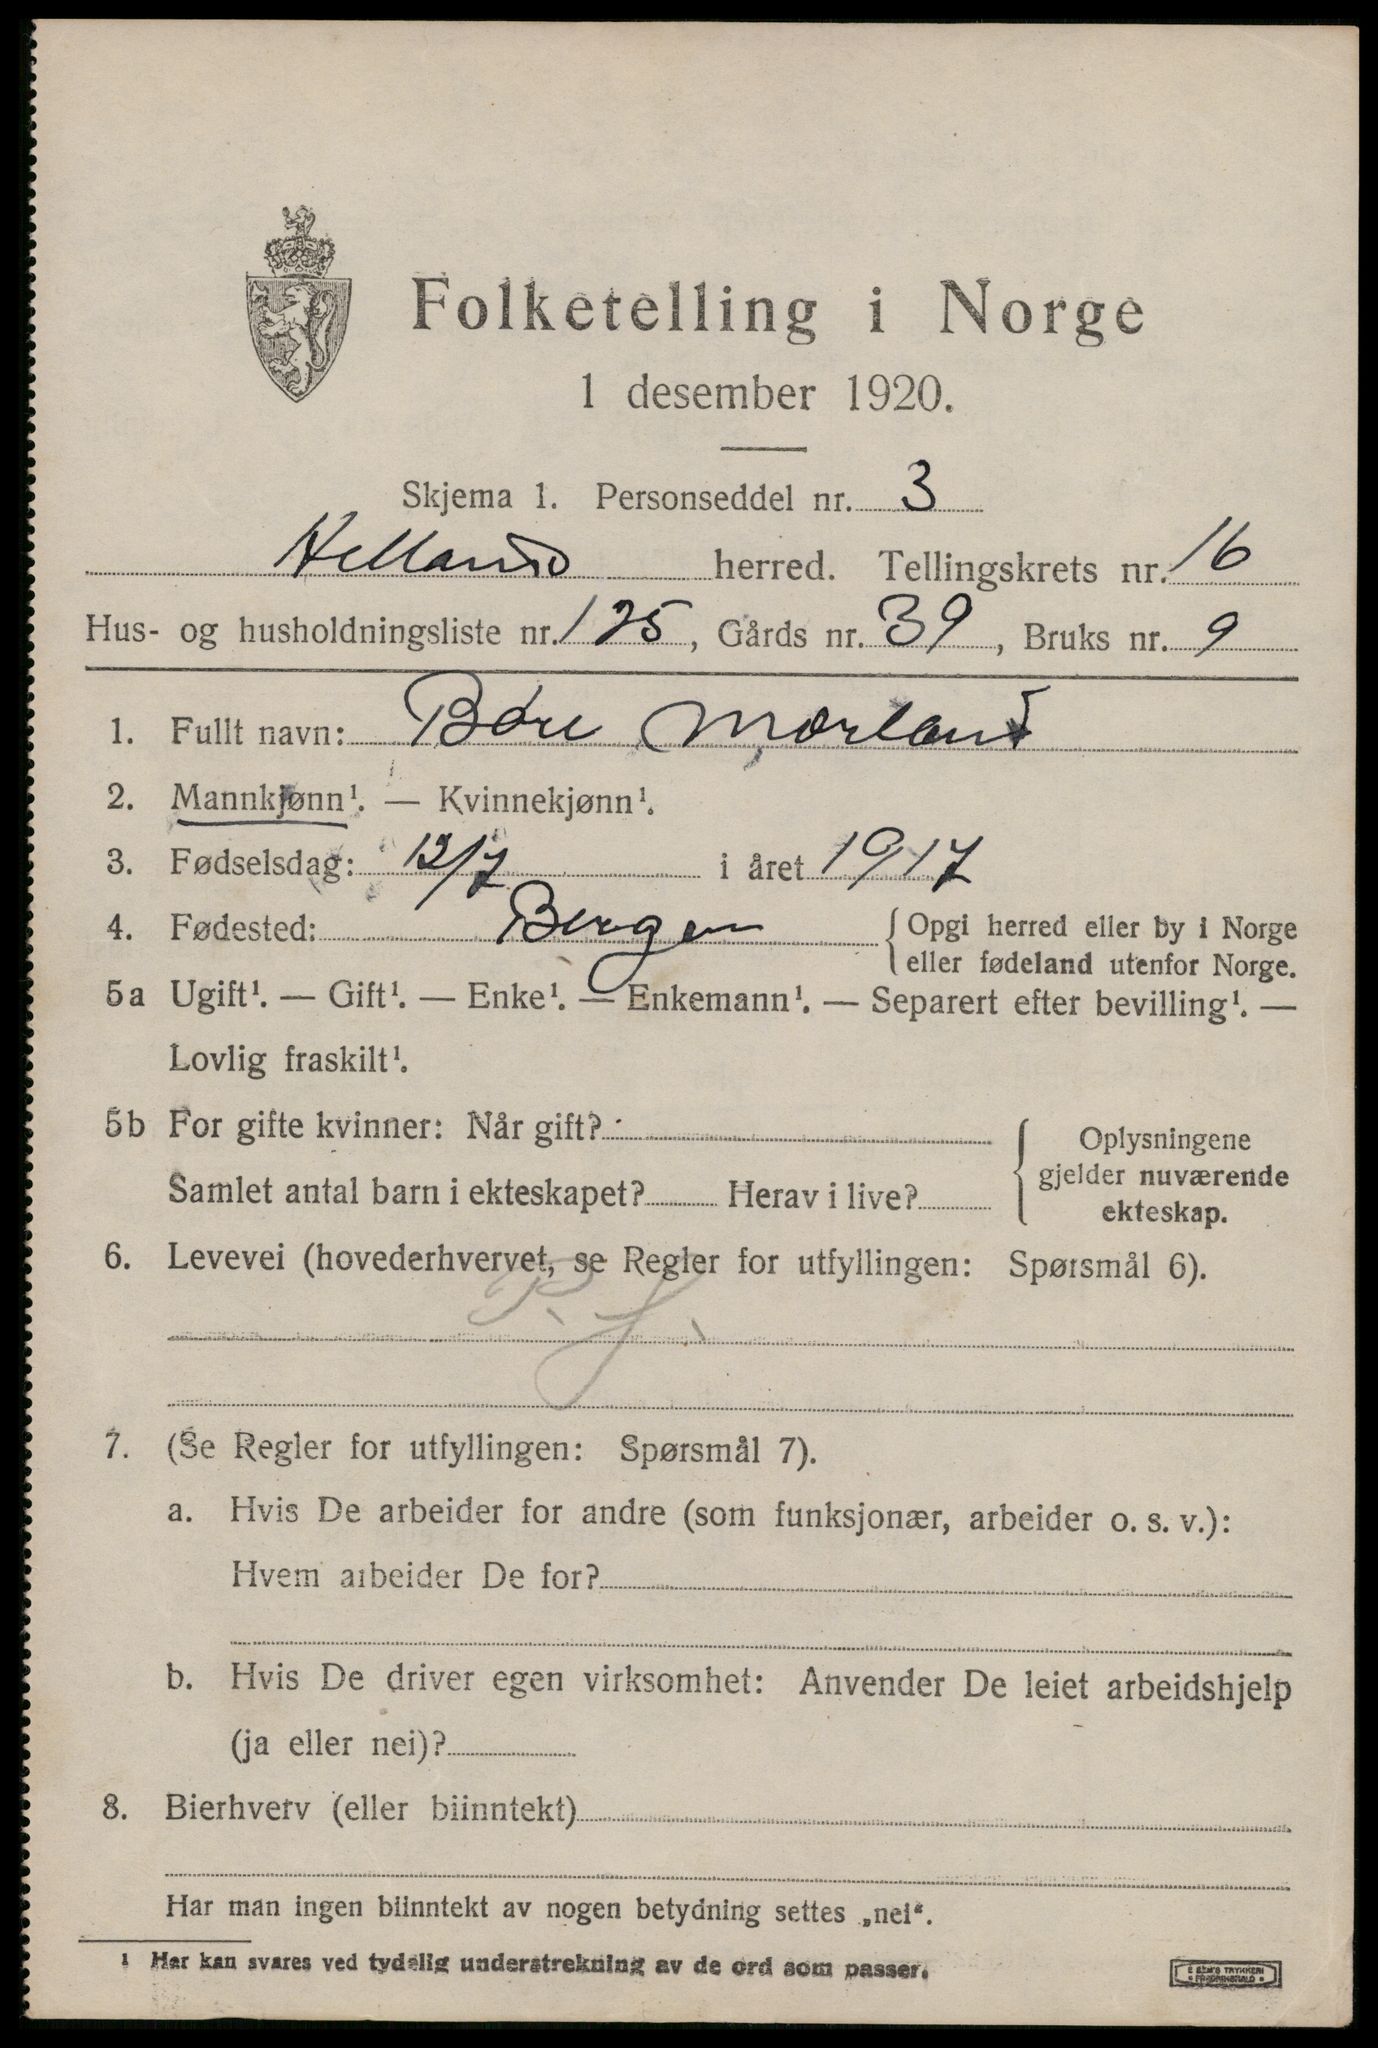 Folketelling i Norge
1 desember 1920.
Skjema 1. Personseddel nr. 3
herred. Tellingskrets nr. 16
Hus- og husholdningsliste nr. 125, Gårds nr. 39, Bruks nr. 9
1. Fullt navn: Børe Mørland
2. Mannkjønn¹. — Kvinnekjønn¹.
3. Fødselsdag: 12/7 i året 1917
4. Fødested: Bergen { Opgi herred eller by i Norge
eller fødeland utenfor Norge.
5a Ugift¹. — Gift¹. — Enke¹. — Enkemann¹. — Separert efter bevilling¹. —
Lovlig fraskilt¹.
5b For gifte kvinner: Når gift?
Samlet antal barn i ekteskapet? Herav i live?
{ Oplysningene
gjelder nuværende
ekteskap.
6. Levevei (hovederhvervet, se Regler for utfyllingen: Spørsmål 6).
7. (Se Regler for utfyllingen: Spørsmål 7).
a. Hvis De arbeider for andre (som funksjonær, arbeider o. s. v.):
Hvem arbeider De for?
b. Hvis De driver egen virksomhet: Anvender De leiet arbeidshjelp
(ja eller nei)?
8. Bierhverv (eller biinntekt)
Har man ingen biinntekt av nogen betydning settes „nei“.
¹ Her kan svares ved tydelig understrekning av de ord som passer.